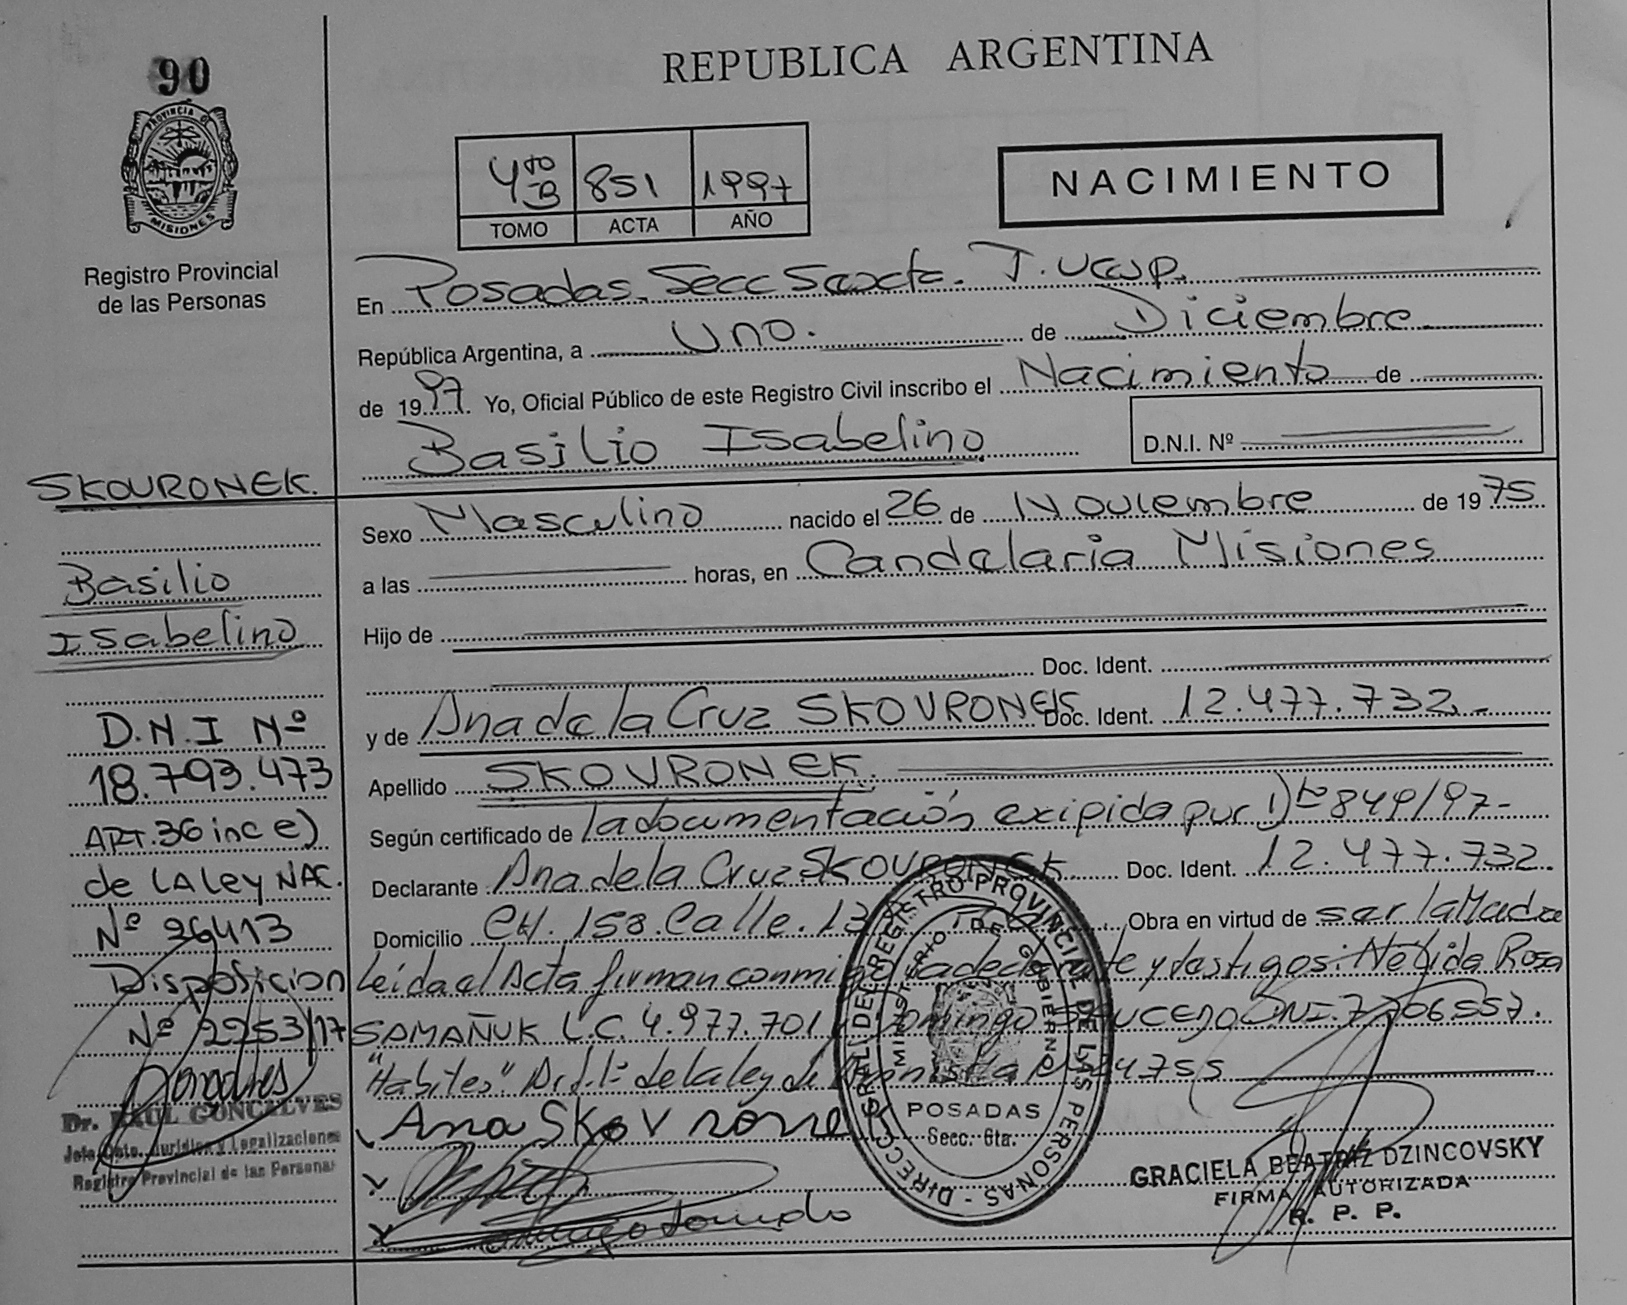 90
PROVINCIA D
MISIONES
Registro Provincial
de las Personas
REPUBLICA ARGENTINA
4to B 851 1997
TOMO ACTA AÑO
NACIMIENTO
En Posadas. Secc Sexta.
República Argentina, a Uno. de Diciembre
de 1997. Yo, Oficial Público de este Registro Civil inscribo el Nacimiento de
Basilio Isabelino D.N.I. Nº
SKOURONEK.
Basilio
Isabelino
D.N.I Nº
18.793.473
ART. 36 inc e)
de LA Ley NAC.
Nº 26413
Disposicion
Nº 2253/17
Dr. RAUL GONCALVES
Jefe Dpto. Juridico y Legalizaciones
Registro Provincial de las Personas
Sexo Masculino nacido el 26 de Noviembre de 1975
a las horas, en Candelaria Misiones
Hijo de
Doc. Ident.
y de Ana de la Cruz SKOVRONEK Doc. Ident. 12.477.732
Apellido SKOVRONEK.
Según certificado de la documentación exipida por Dto 849/97
Declarante Ana de la Cruz SKOVRONEK Doc. Ident. 12.477.732.
Domicilio CH. 158. Calle. 13 Obra en virtud de ser la Madre
Leída el Acta firman conmigo la declarante y testigos: Nélida Rosa
SAMAÑUK L.C. 4.977.701 Domingo SAUCEDO DNI. 7.706557.
"Habiles". Art. 1º de la ley de Amnistia 24755
Ana Skovronek
DIRECC. GRAL. DEL REGISTRO PROVINCIAL DE LAS PERSONAS
MINISTERIO DE GOBIERNO
POSADAS
Secc. 6ta.
GRACIELA BEATRIZ DZINCOVSKY
FIRMA AUTORIZADA
R. P. P.